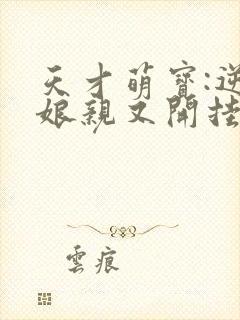 天才萌寶:逆
娘親又開挂
雲痕